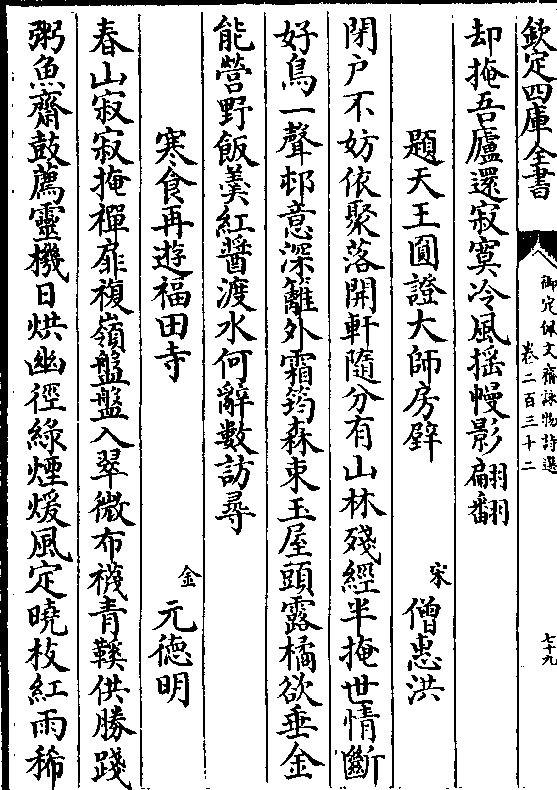 欽定四庫全書
御定佩文齋詠物詩選
卷二百三十二
七十九
却掩吾廬還寂寞冷風揺幔影翩翻
題天王圓證大師房壁
宋 僧惠洪
閉户不妨依聚落開軒隨分有山林殘經半掩世情斷
好鳥一聲邨意深籬外霜筠森束玉屋頭露橘欲垂金
能營野飯羮紅醬渡水何辭數訪尋
寒食再遊福田寺
金 元德明
春山寂寂掩禪扉複嶺盤盤入翠微布襪青鞵供勝踐
粥魚齋鼓薦靈機日烘幽徑綠煙煖風定曉枝紅雨稀